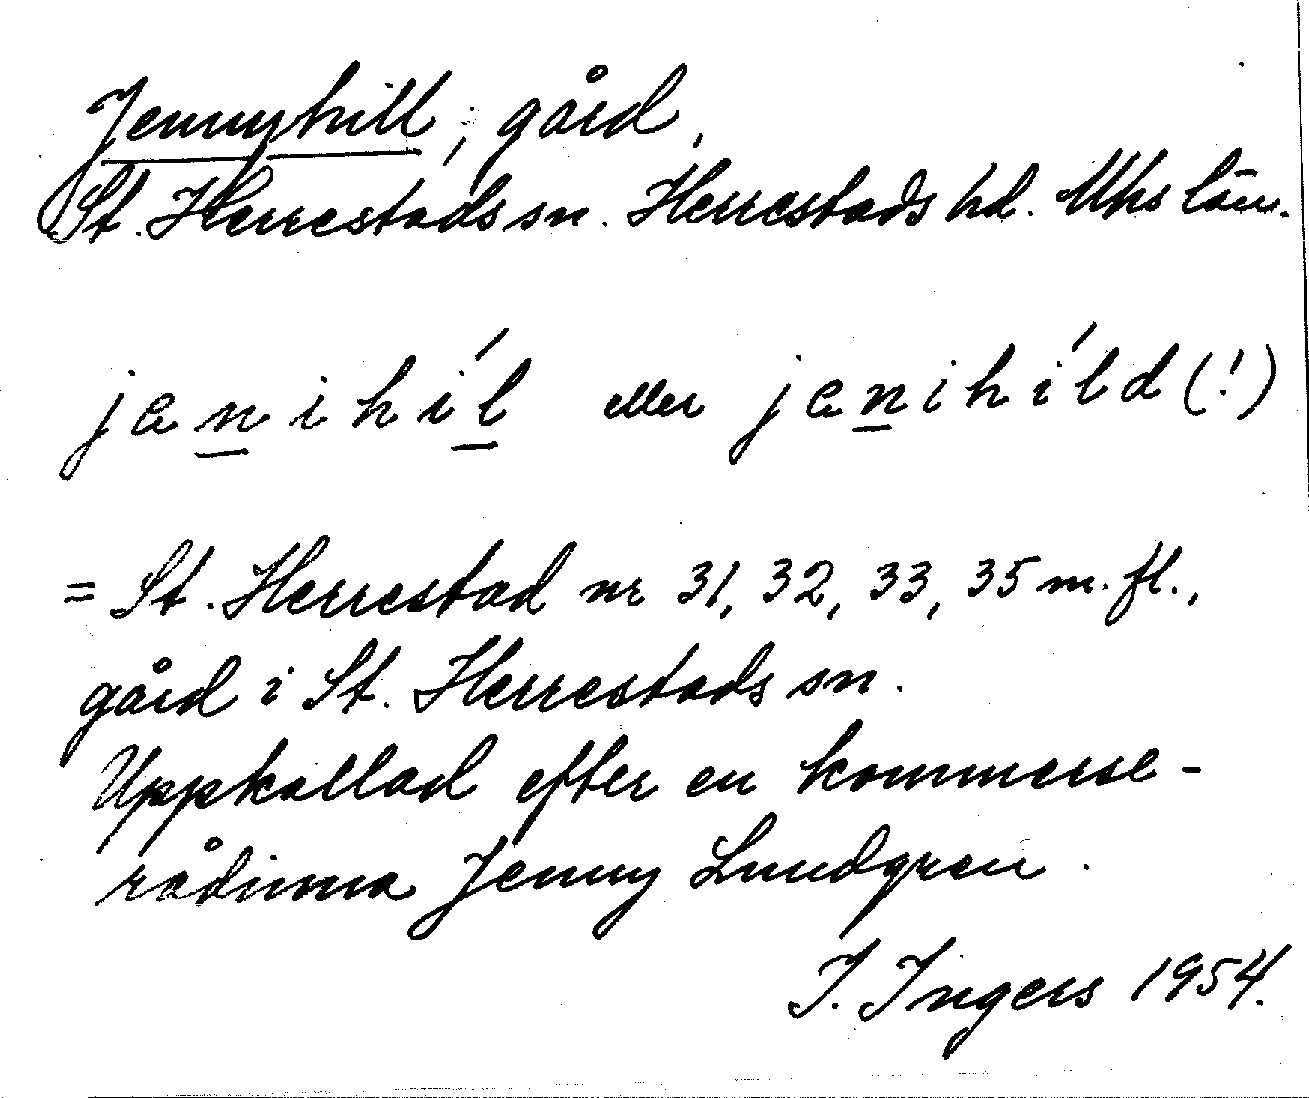 Jennyhill, gård,
St. Herrestads sn. Herrestads hd. Mhs län.
janihíl eller janihíld (!)
= St. Herrestad nr 31, 32, 33, 35 m. fl.,
gård i St. Herrestads sn.
Uppkallad efter en kommerse-
rådinna Jenny Lundgren.
I. Ingers 1954.